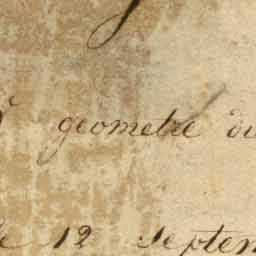 geometre du
le 12 Septem